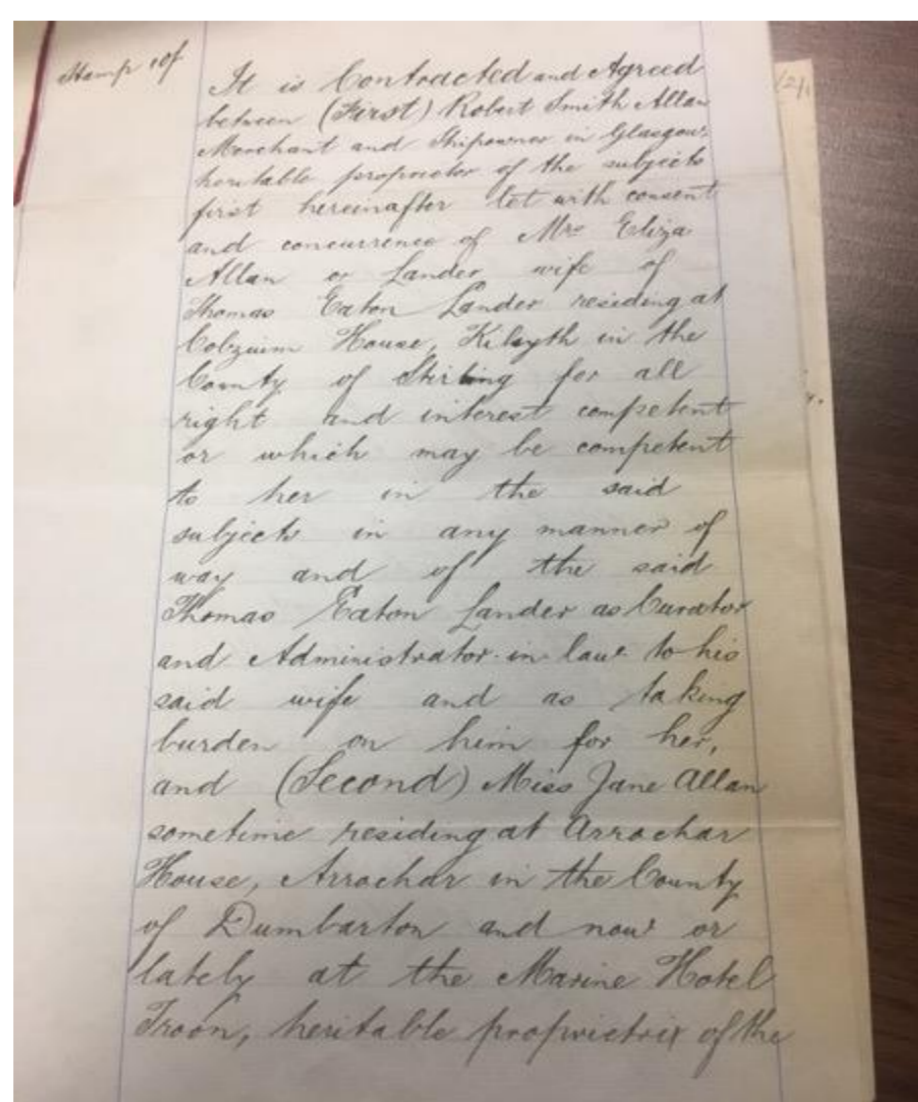 Stamp 10/
It is Contracted and Agreed
between (First) Robert Smith Allan
Merchant and Shipowner in Glasgow
heritable proprietor of the subjects
first hereinafter let with consent
and concurrence of Mrs Eliza
Allan or Lander wife of
Thomas Eaton Lander residing at
Colzium House, Kilsyth in the
County of Stirling for all
right and interest competent
or which may be competent
to her in the said
subjects in any manner of
way and of the said
Thomas Eaton Lander as Curator
and Administrator-in-law to his
said wife and as taking
burden on him for her,
and (Second) Miss Jane Allan
sometime residing at Arrochar
House, Arrochar in the County
of Dumbarton and now or
lately at the Marine Hotel
Troon, heritable proprietrix of the